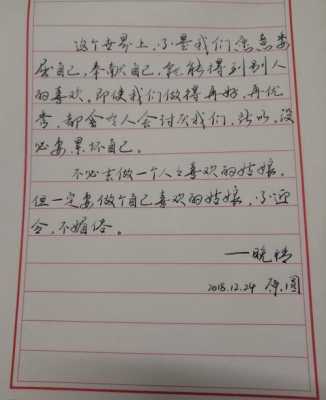 这个世界上，不是我们急急委
屈自己，奉献自己，就能得到别人
的喜欢。即使我们做得再好，再优
秀，都会有人会讨厌我们，所以，没
必要累坏自己。
不必去做一个人人喜欢的姑娘，
但一定要做个自己喜欢的姑娘，不迎
合，不媚俗。
一晚情
2018.12.24